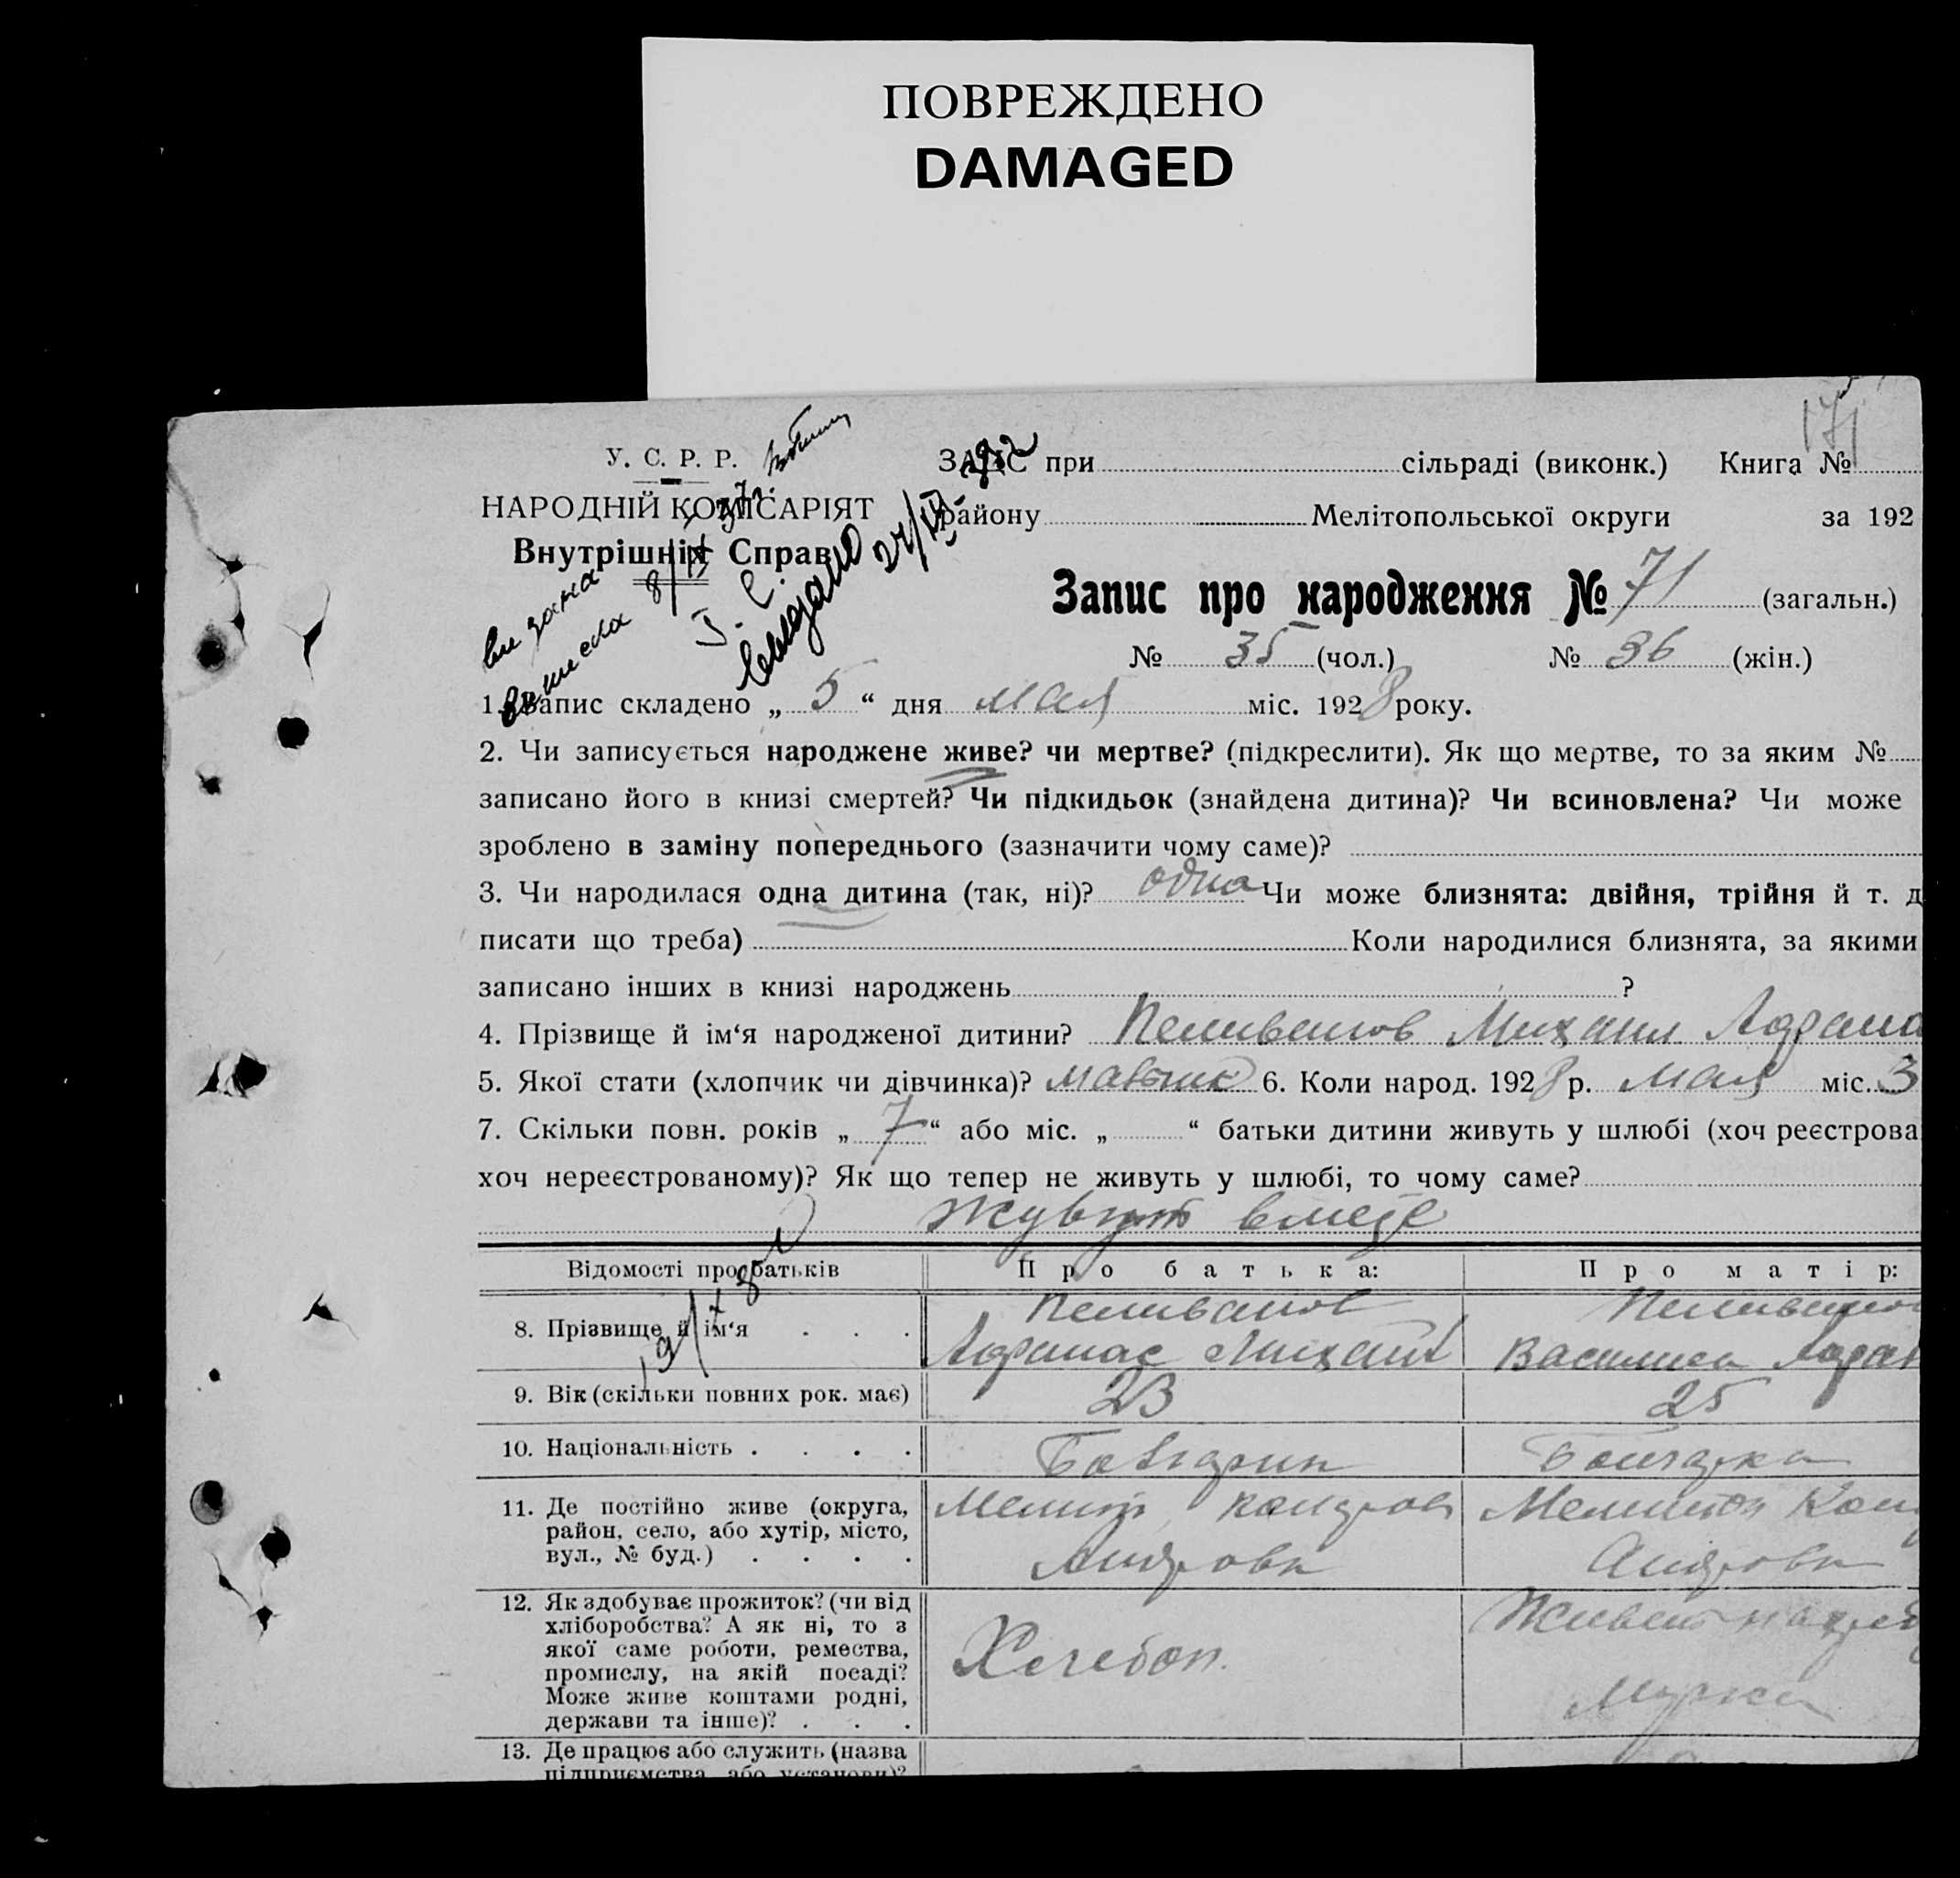 ПОВРЕЖДЕНО
DAMAGED
171
У. С. Р. Р.
НАРОДНІЙ КОМІСАРІЯТ
Внутрішніх Справ
ЗАПИС при сільраді (виконк.) Книга №
району Мелітопольської округи за 192
Запис про народження № 71 (загальн.)
№ 35 (чол.) № 36 (жін.)
1. Запис складено „ 5 “ дня мая міс. 1928 року.
2. Чи записується народжене живе? чи мертве? (підкреслити). Як що мертве, то за яким №
записано його в книзі смертей? Чи підкидьок (знайдена дитина)? Чи всиновлена? Чи може
зроблено в заміну попереднього (зазначити чому саме)?
3. Чи народилася одна дитина (так, ні)? одна Чи може близнята: двійня, трійня й т. д
писати що треба) Коли народилися близнята, за якими
записано інших в книзі народжень ?
4. Прізвище й ім‘я народженої дитини? Пеливанов Михаил
5. Якої стати (хлопчик чи дівчинка)? 6. Коли народ. 1928 р. мая міс. 3
7. Скільки повн. років „ 7 “ або міс. „ “ батьки дитини живуть у шлюбі (хоч реєстрова
хоч нереєстрованому)? Як що тепер не живуть у шлюбі, то чому саме?
Відомості про батьків Про батька: Про матір:
8. Прізвище й ім‘я Пеливанов
9. Вік (скільки повних рок. має) 23 25
10. Національність Болгарин Болгарка
11. Де постійно живе (округа,
район, село, або хутір, місто,
вул., № буд.)
12. Як здобуває прожиток? (чи від
хліборобства? А як ні, то з
якої саме роботи, ремества,
промислу, на якій посаді?
Може живе коштами родні,
держави та інше)? Хлебоп.
мужа
13. Де працює або служить (назва
підприємства, або установи)?